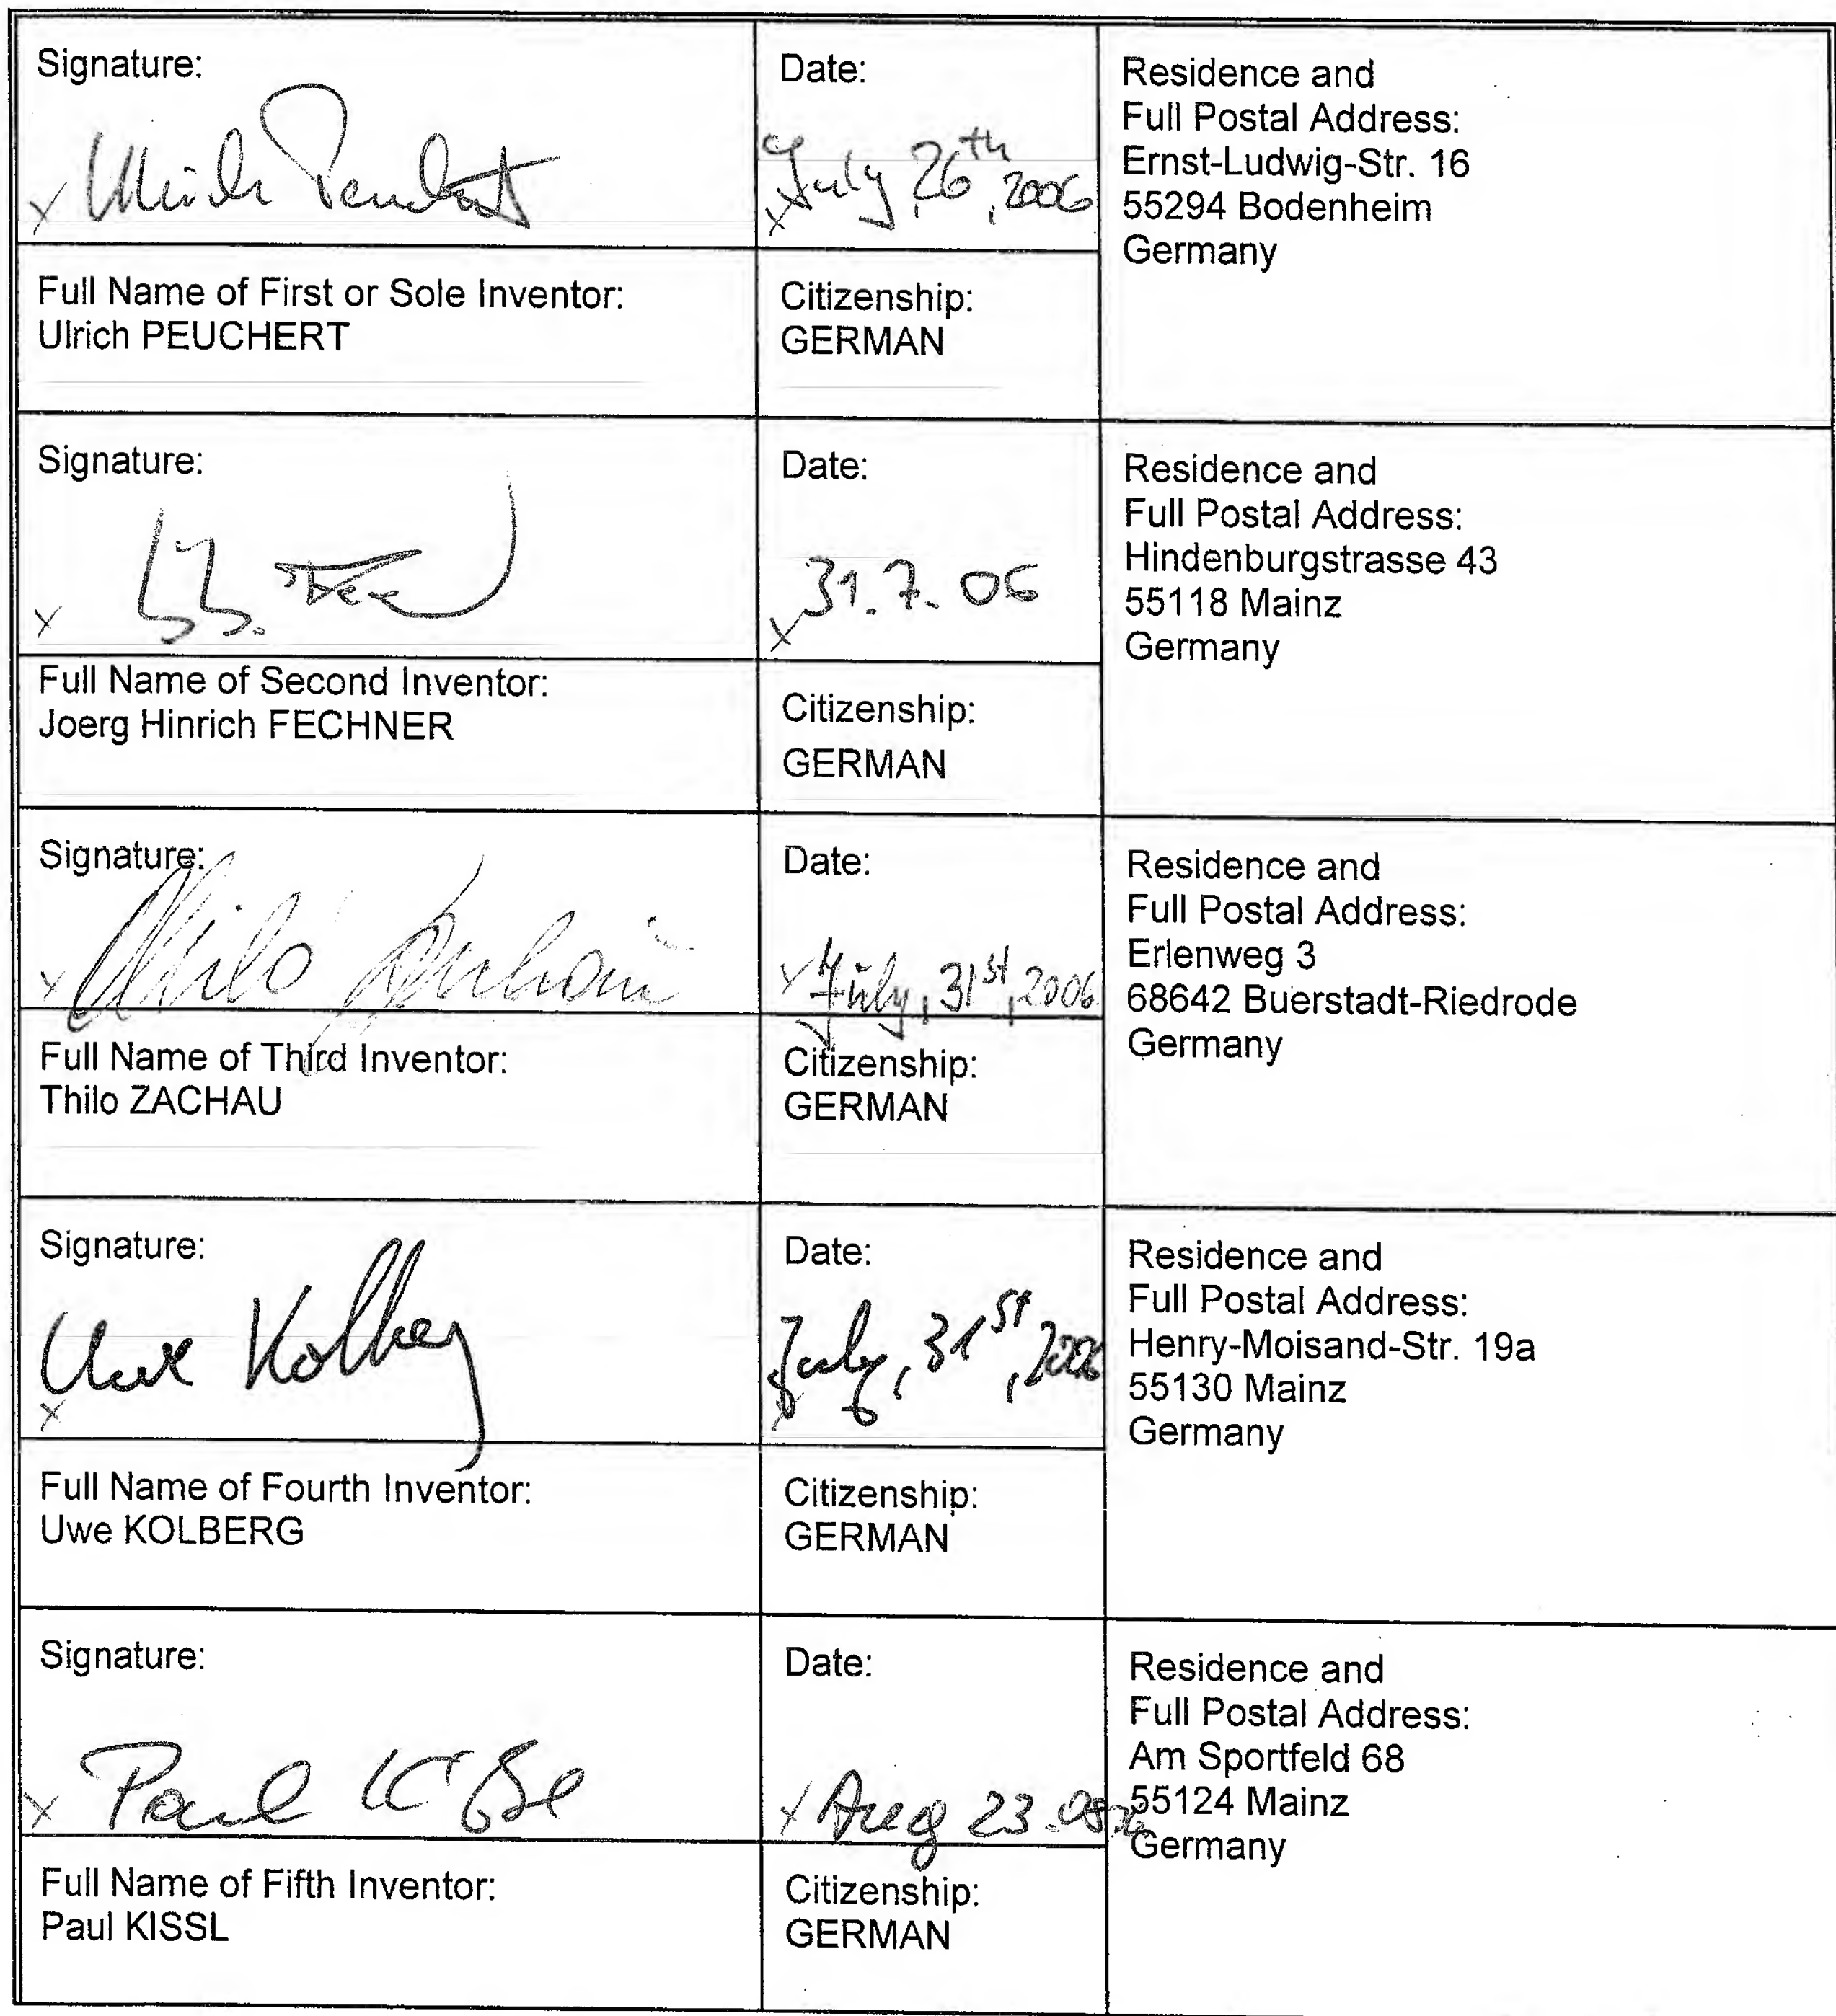 Signature:
Ulrich Peuchert
Date:
July 26th, 2006
Residence and
Full Postal Address:
Ernst-Ludwig-Str. 16
55294 Bodenheim
Germany
Full Name of First or Sole Inventor:
Ulrich PEUCHERT
Citizenship:
GERMAN
Signature:
Date:
31.7.06
Residence and
Full Postal Address:
Hindenburgstrasse 43
55118 Mainz
Germany
Full Name of Second Inventor:
Joerg Hinrich FECHNER
Citizenship:
GERMAN
Signature:
Thilo Zachau
Date:
July, 31st, 2006
Residence and
Full Postal Address:
Erlenweg 3
68642 Buerstadt-Riedrode
Germany
Full Name of Third Inventor:
Thilo ZACHAU
Citizenship:
GERMAN
Signature:
Uwe Kolberg
Date:
July, 31st, 2006
Residence and
Full Postal Address:
Henry-Moisand-Str. 19a
55130 Mainz
Germany
Full Name of Fourth Inventor:
Uwe KOLBERG
Citizenship:
GERMAN
Signature:
Paul Kißl
Date:
Aug 23.08.
Residence and
Full Postal Address:
Am Sportfeld 68
55124 Mainz
Germany
Full Name of Fifth Inventor:
Paul KISSL
Citizenship:
GERMAN